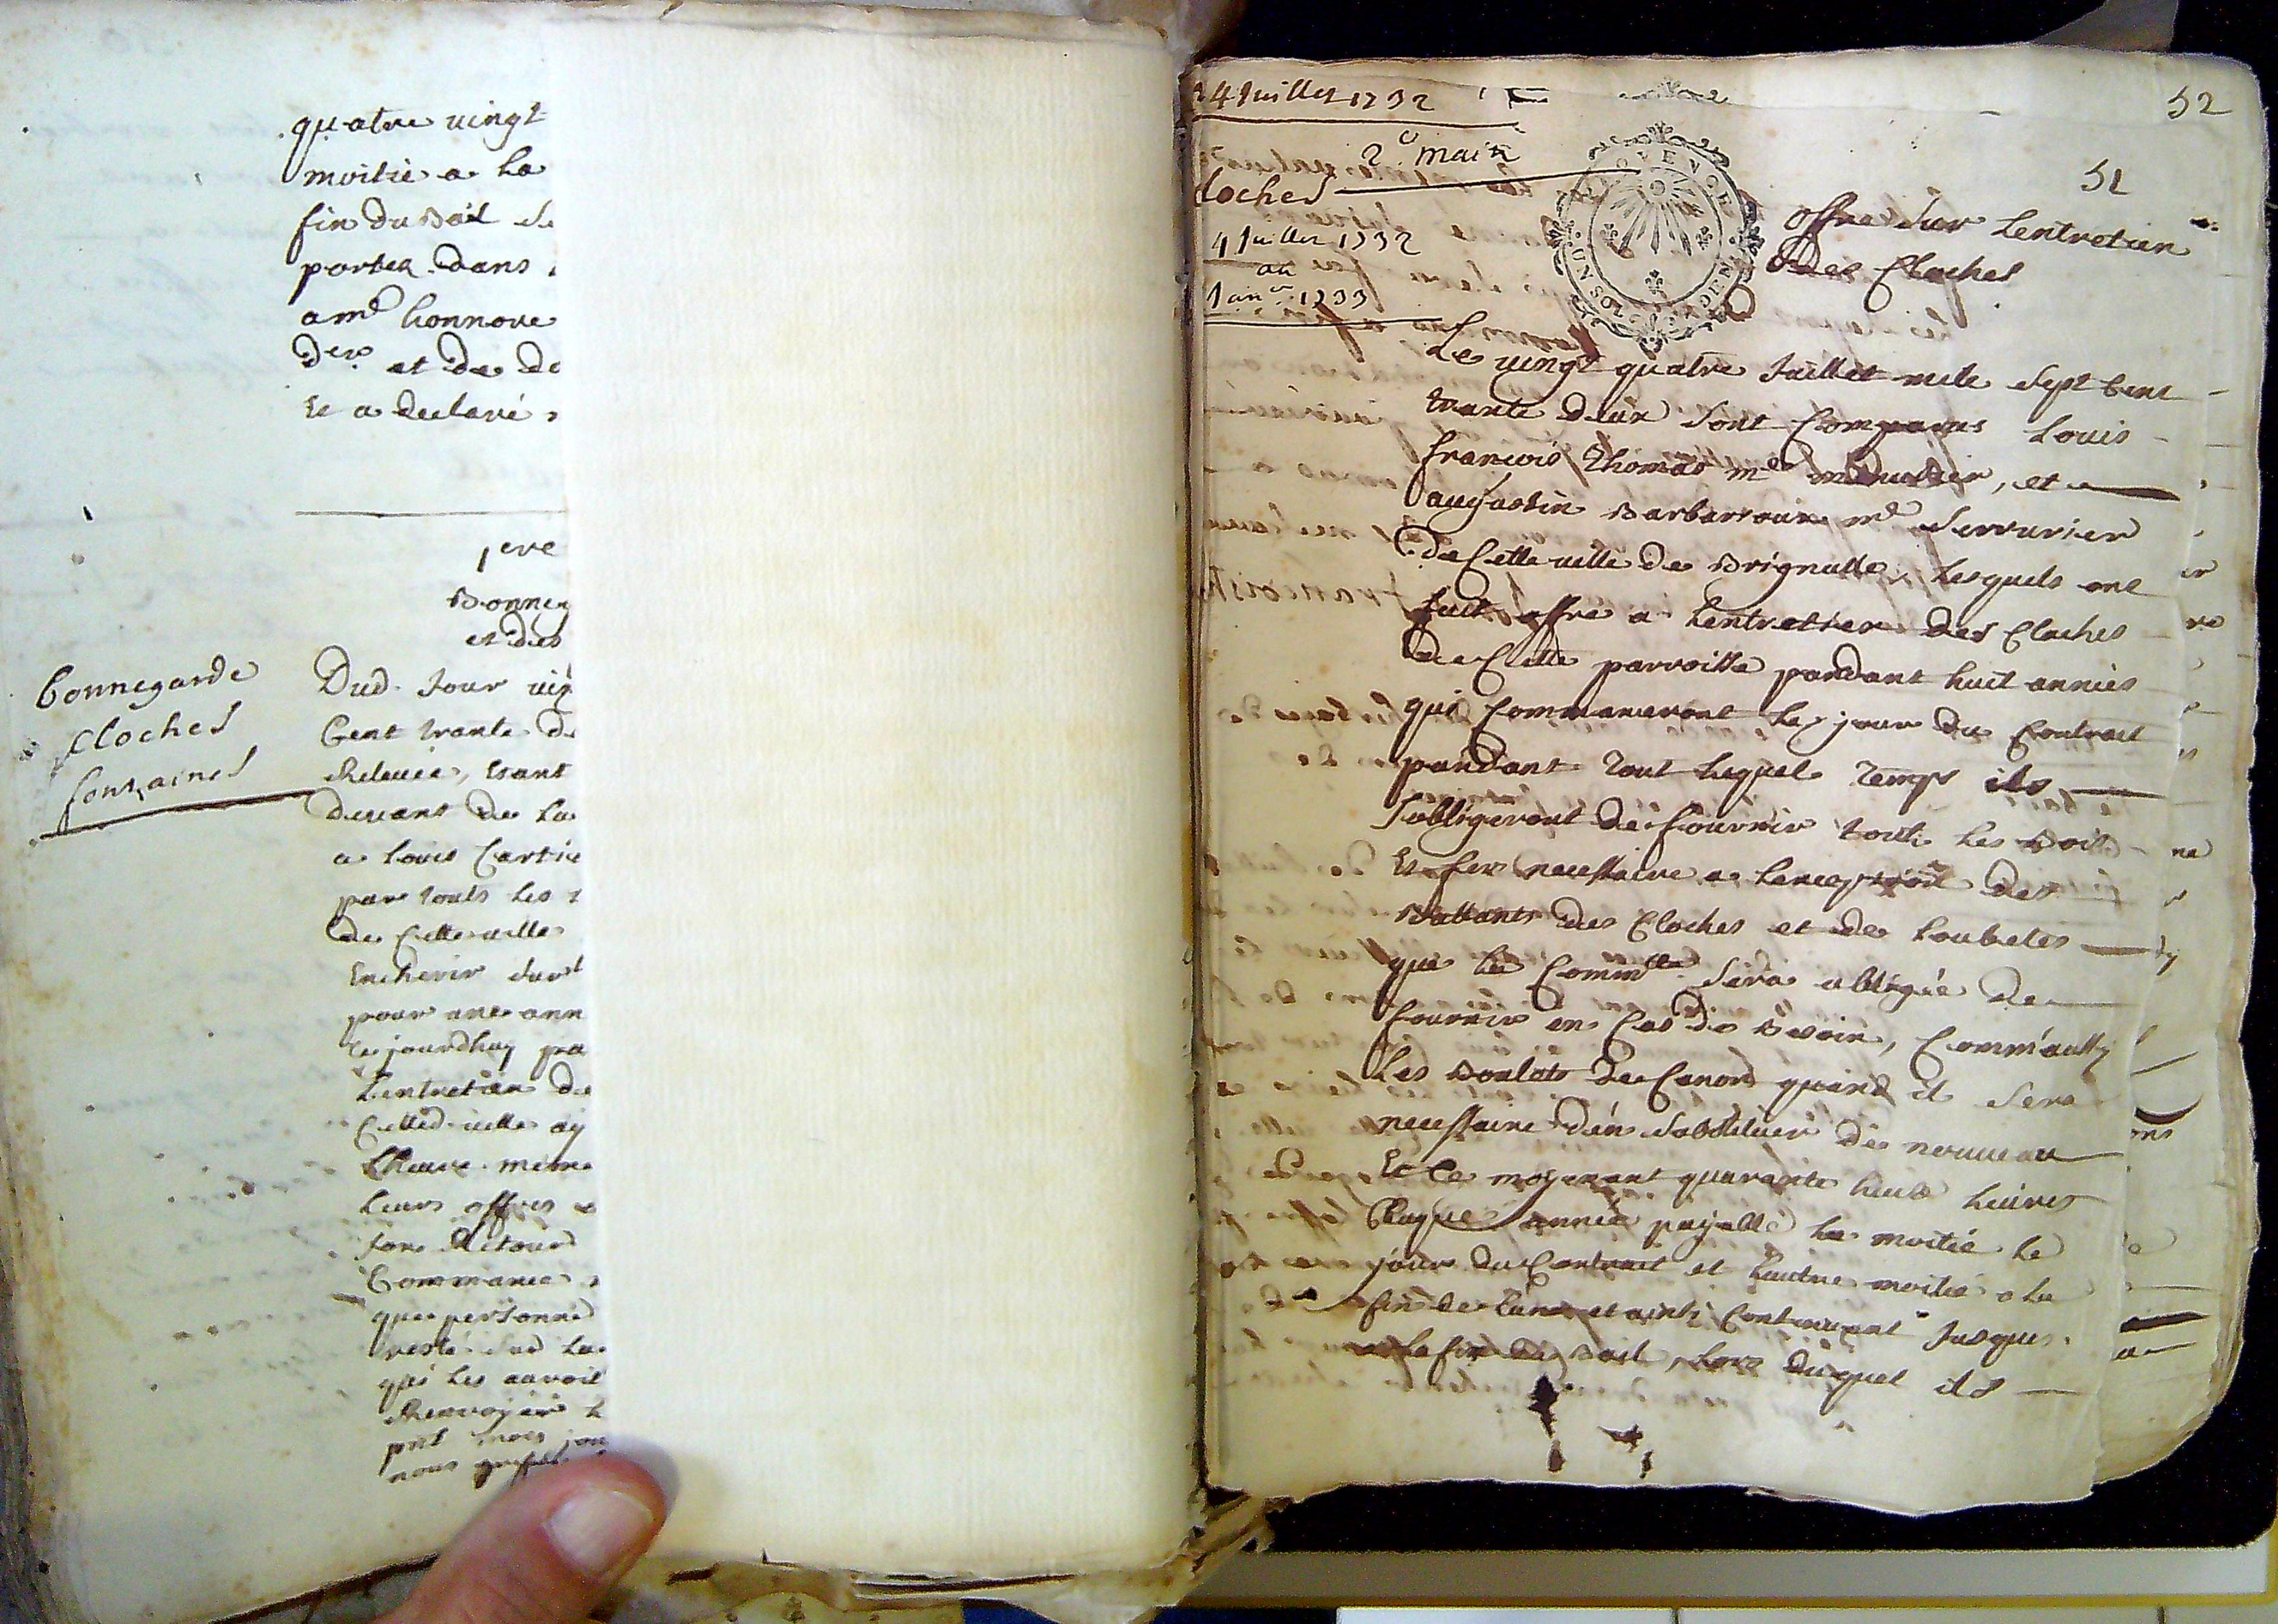 quatre uingt
moitié a la
fin du Bail
portez dans
a md honnore
et de
Et a declaré
Bonneg
et des
bonnegarde
cloches
fontaines
Dud. Jour
Cent trante
Releueé, Etant
deuant de la
a louis Cartie
par touts les
de cette uille
Encherir Sur
pour une ann
Lentretien de
Cetted. uille ay
Lheure meme
leurs offres
Son Retour
Commance
que personne
resté
qui les auroit
nous
24 Juillet 1732
2e main
cloches
4 Juillet 1732
au
1733
PROVENCE
UN SOL
DEN
52
52
offre Sur Lentretien
des Cloches
Le uingt quatre Juillet mile Sept Cent
trante deux Sont Comparus Louis
francois Thomas me menusier, et
augustin Barbarroux me Serrurier
de Cette uille de Brignolle, Lesquels ont
fait offre a Lentretien des Cloches
de Cette parroisse pandant huit années
qui Commanceront le jour du Contrait
pandant tout lequel temps ils
Sobligeront de fournir tout le Bois
Et fer necessaire a des
Battants des Cloches et de
que la Commté Sera obligée de
fournir en Cas de Besoin, Comm'aussy
Les Boulots de Canon quand il Sera
necessaire d'en Substituer de nouueau
Et Ce moyenant quarante huit liures
Chaque année payable la moitié le
jour du Contrait et lautre moitié a la
fin de Lannée et ainsi Continuant Jusques
a la fin du Bail, Lors duquel ils